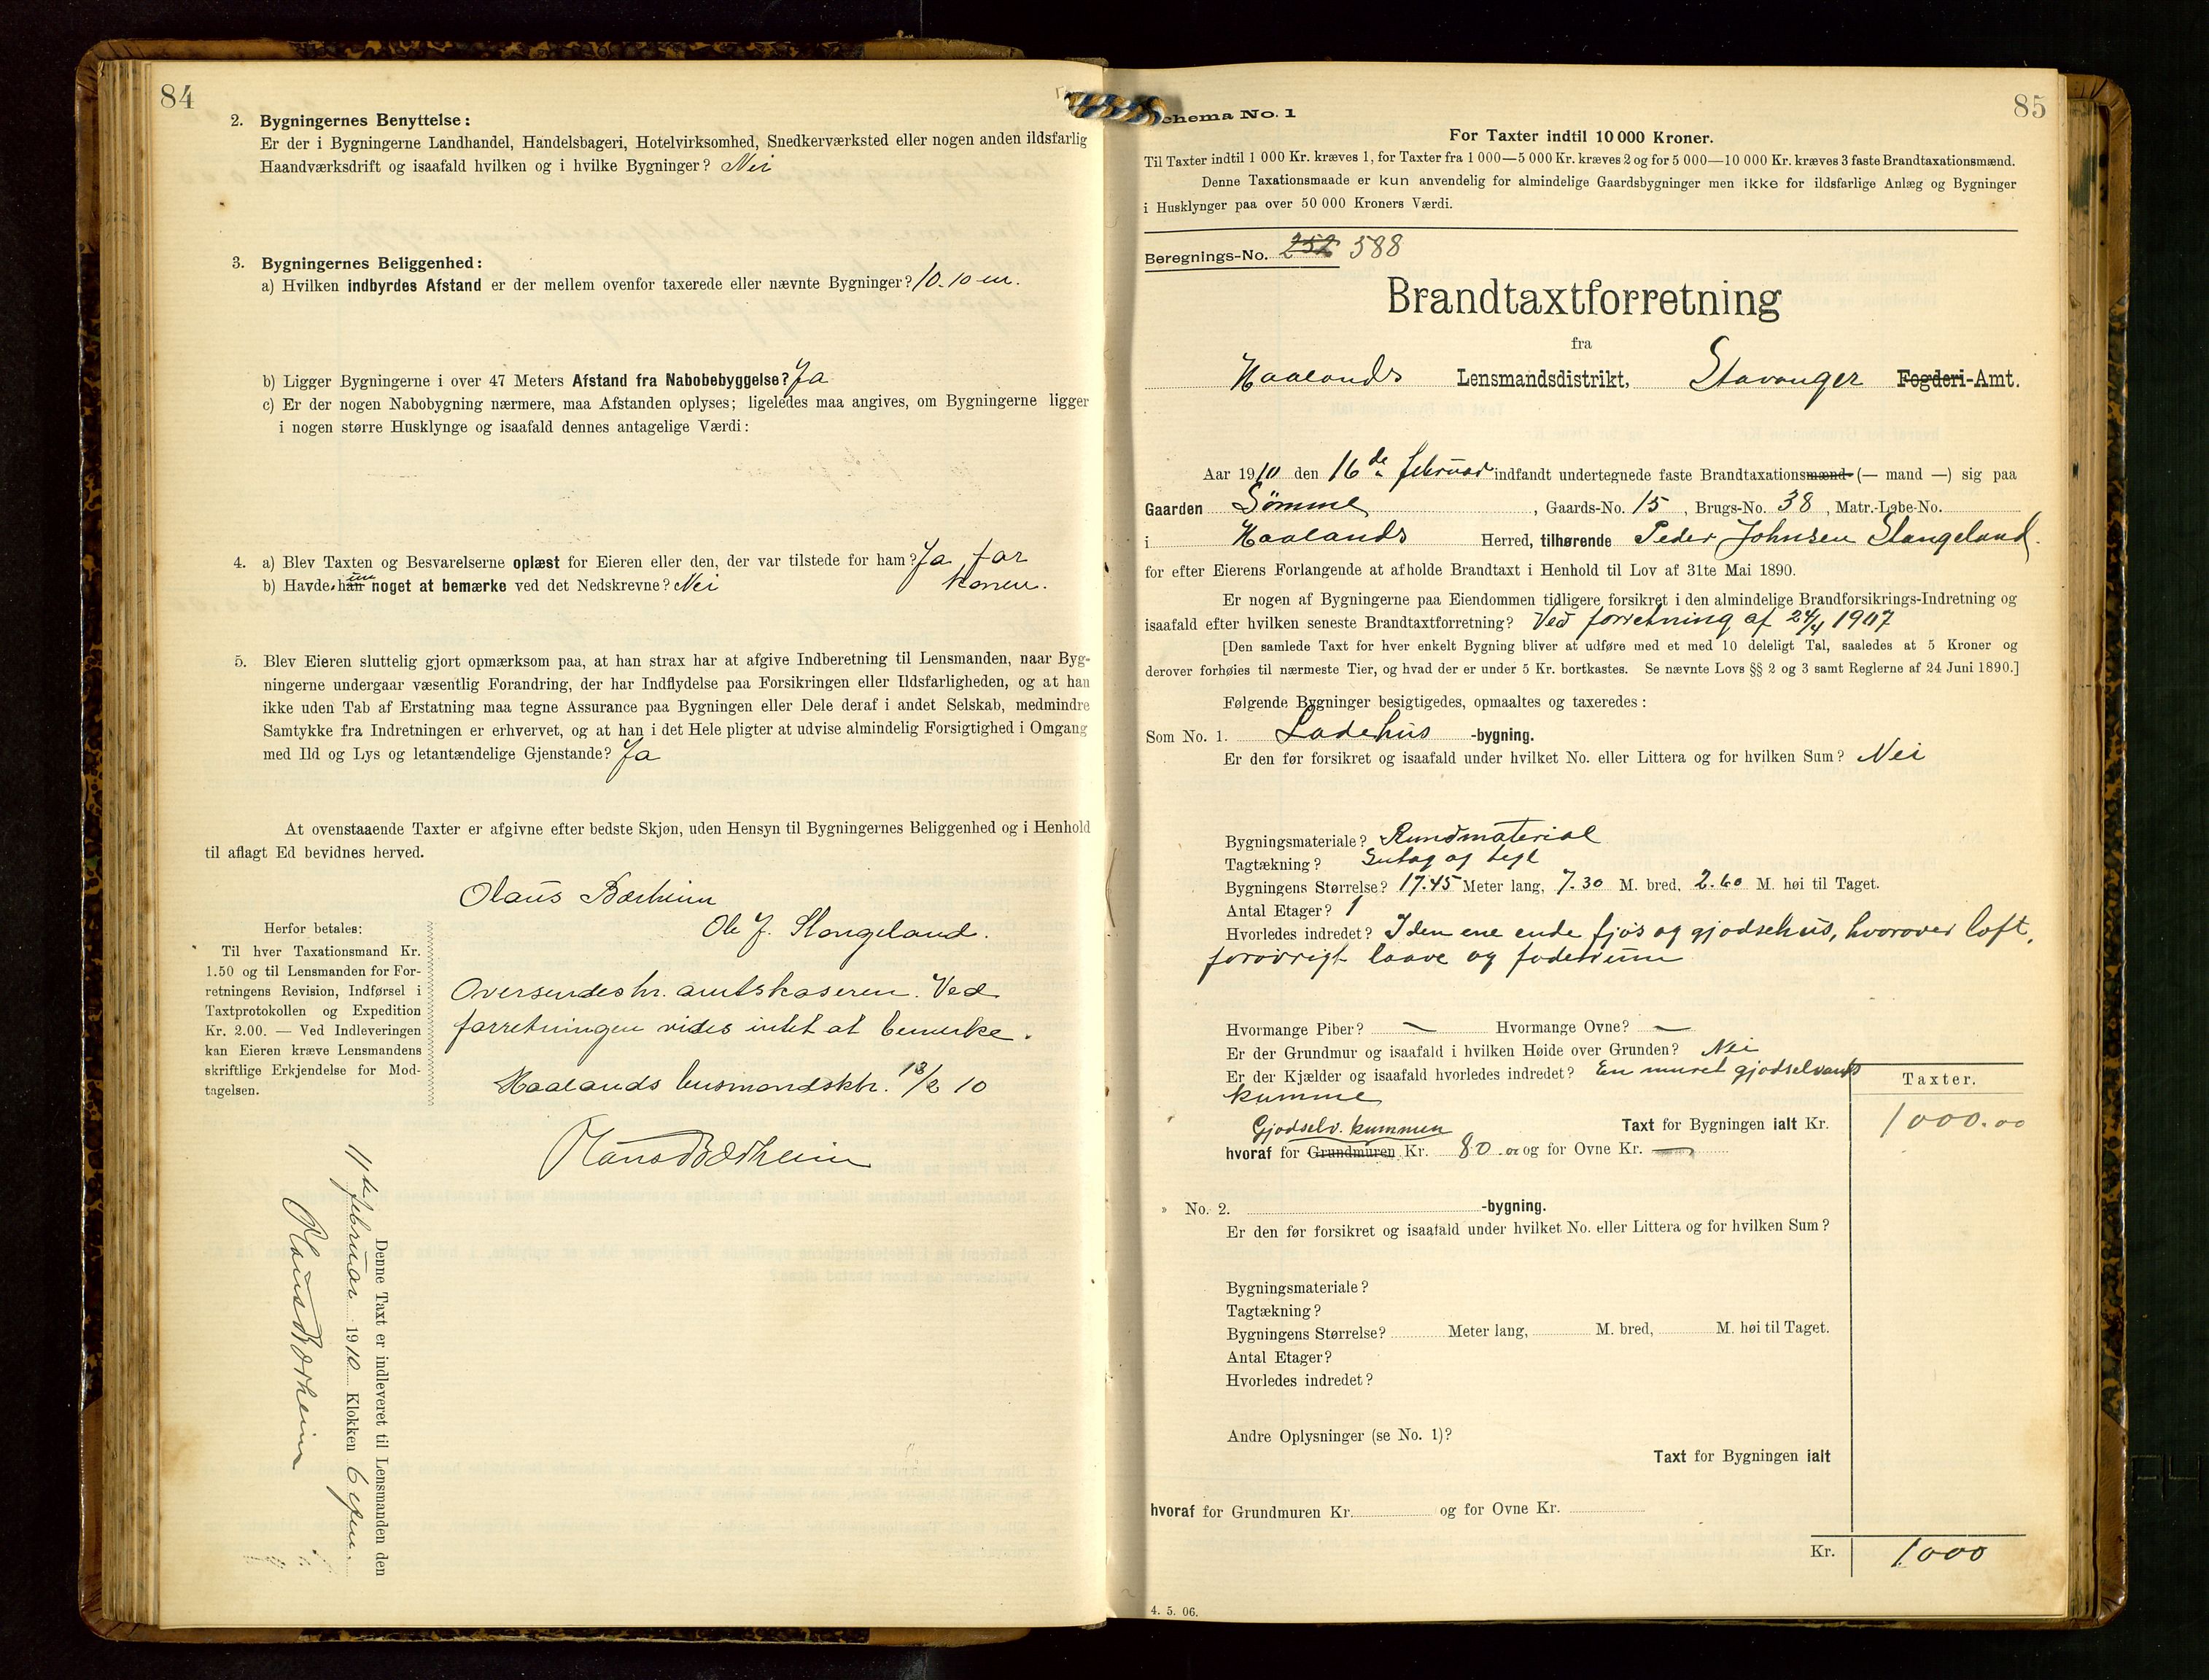 84
2. Bygningernes Benyttelse:
Er der i Bygningerne Landhandel, Handelsbageri, Hotelvirksomhed, Snedkerværksted eller nogen anden ildsfarlig
Haandværksdrift og isaafald hvilken og i hvilke Bygninger? Nei
3. Bygningernes Beliggenhed:
a) Hvilken indbyrdes Afstand er der mellem ovenfor taxerede eller nævnte Bygninger? 10.10 m.
b) Ligger Bygningerne i over 47 Meters Afstand fra Nabobebyggelse? Ja
c) Er der nogen Nabobygning nærmere, maa Afstanden oplyses; ligeledes maa angives, om Bygningerne ligger
i nogen større Husklynge og isaafald dennes antagelige Værdi:
4. a) Blev Taxten og Besvarelserne oplæst for Eieren eller den, der var tilstede for ham? Ja for
b) Havde han noget at bemærke ved det Nedskrevne? Nei konen.
5. Blev Eieren sluttelig gjort opmærksom paa, at han strax har at afgive Indberetning til Lensmanden, naar Byg-
ningerne undergaar væsentlig Forandring, der har Indflydelse paa Forsikringen eller Ildsfarligheden, og at han
ikke uden Tab af Erstatning maa tegne Assurance paa Bygningen eller Dele deraf i andet Selskab, medmindre
Samtykke fra Indretningen er erhvervet, og at han i det Hele pligter at udvise almindelig Forsigtighed i Omgang
med Ild og Lys og letantændelige Gjenstande? Ja
At ovenstaaende Taxter er afgivne efter bedste Skjøn, uden Hensyn til Bygningernes Beliggenhed og i Henhold
til aflagt Ed bevidnes herved.
Olaus Bærheim
Ole J. Stangeland.
Herfor betales:
Til hver Taxationsmand Kr.
1.50 og til Lensmanden for For-
retningens Revision, Indførsel i
Taxtprotokollen og Expedition
Kr. 2.00. — Ved Indleveringen
kan Eieren kræve Lensmandens
skriftlige Erkjendelse for Mod-
tagelsen.
Oversendes hr. amtskaseren. Ved
forretningen vides intet at bemerke.
Haalands lensmandsktr. 18/2 10
Olaus Bærheim
Denne Taxt er indleveret til Lensmanden den
februar 1910 Klokken 6 efm.
Olaus Bærheim
85
chema No. 1
For Taxter indtil 10 000 Kroner.
Til Taxter indtil 1 000 Kr. kræves 1, for Taxter fra 1 000—5 000 Kr. kræves 2 og for 5 000—10 000 Kr. kræves 3 faste Brandtaxationsmænd.
Denne Taxationsmaade er kun anvendelig for almindelige Gaardsbygninger men ikke for ildsfarlige Anlæg og Bygninger
i Husklynger paa over 50 000 Kroners Værdi.
Beregnings-No. 252 588
Brandtaxtforretning
fra
Haalands Lensmandsdistrikt, Stavanger Fogderi-Amt.
Aar 1910 den 16de februar indfandt undertegnede faste Brandtaxationsmænd (— mand —) sig paa
Gaarden Sömme, Gaards-No. 15, Brugs-No. 38, Matr.-Løbe-No.
i Haalands Herred, tilhørende Peder Johnsen Stangeland.
for efter Eierens Forlangende at afholde Brandtaxt i Henhold til Lov af 31te Mai 1890.
Er nogen af Bygningerne paa Eiendommen tidligere forsikret i den almindelige Brandforsikrings-Indretning og
isaafald efter hvilken seneste Brandtaxtforretning? Ved forretning af 24/4 1907
[Den samlede Taxt for hver enkelt Bygning bliver at udføre med et med 10 deleligt Tal, saaledes at 5 Kroner og
derover forhøies til nærmeste Tier, og hvad der er under 5 Kr. bortkastes. Se nævnte Lovs §§ 2 og 3 samt Reglerne af 24 Juni 1890.]
Følgende Bygninger besigtigedes, opmaaltes og taxeredes:
Som No. 1. Ladehus -bygning.
Er den før forsikret og isaafald under hvilket No. eller Littera og for hvilken Sum? Nei
Bygningsmateriale? Rundmaterial
Tagtækning? Sutag og tegl
Bygningens Størrelse? 17.45 Meter lang, 7.30 M. bred, 2.60 M. høi til Taget.
Antal Etager? 1
Hvorledes indredet? I den ene ende fjøs og gjødsehus, hvorover loft,
forøvrigt laave og foderrum
Hvormange Piber? — Hvormange Ovne? —
Er der Grundmur og isaafald i hvilken Høide over Grunden? Nei
Er der Kjælder og isaafald hvorledes indredet? En muret gjødselvands
kumme
Taxter.
Gjødselv. kummen Taxt for Bygningen ialt Kr. 1000.00
hvoraf for Grundmuren Kr. 80.00 og for Ovne Kr. —
» No. 2. -bygning.
Er den før forsikret og isaafald under hvilket No. eller Littera og for hvilken Sum?
Bygningsmateriale?
Tagtækning?
Bygningens Størrelse? Meter lang, M. bred, M. høi til Taget.
Antal Etager?
Hvorledes indredet?
Andre Oplysninger (se No. 1)?
Taxt for Bygningen ialt
hvoraf for Grundmuren Kr. og for Ovne Kr.
Kr. 1000
4. 5. 06.